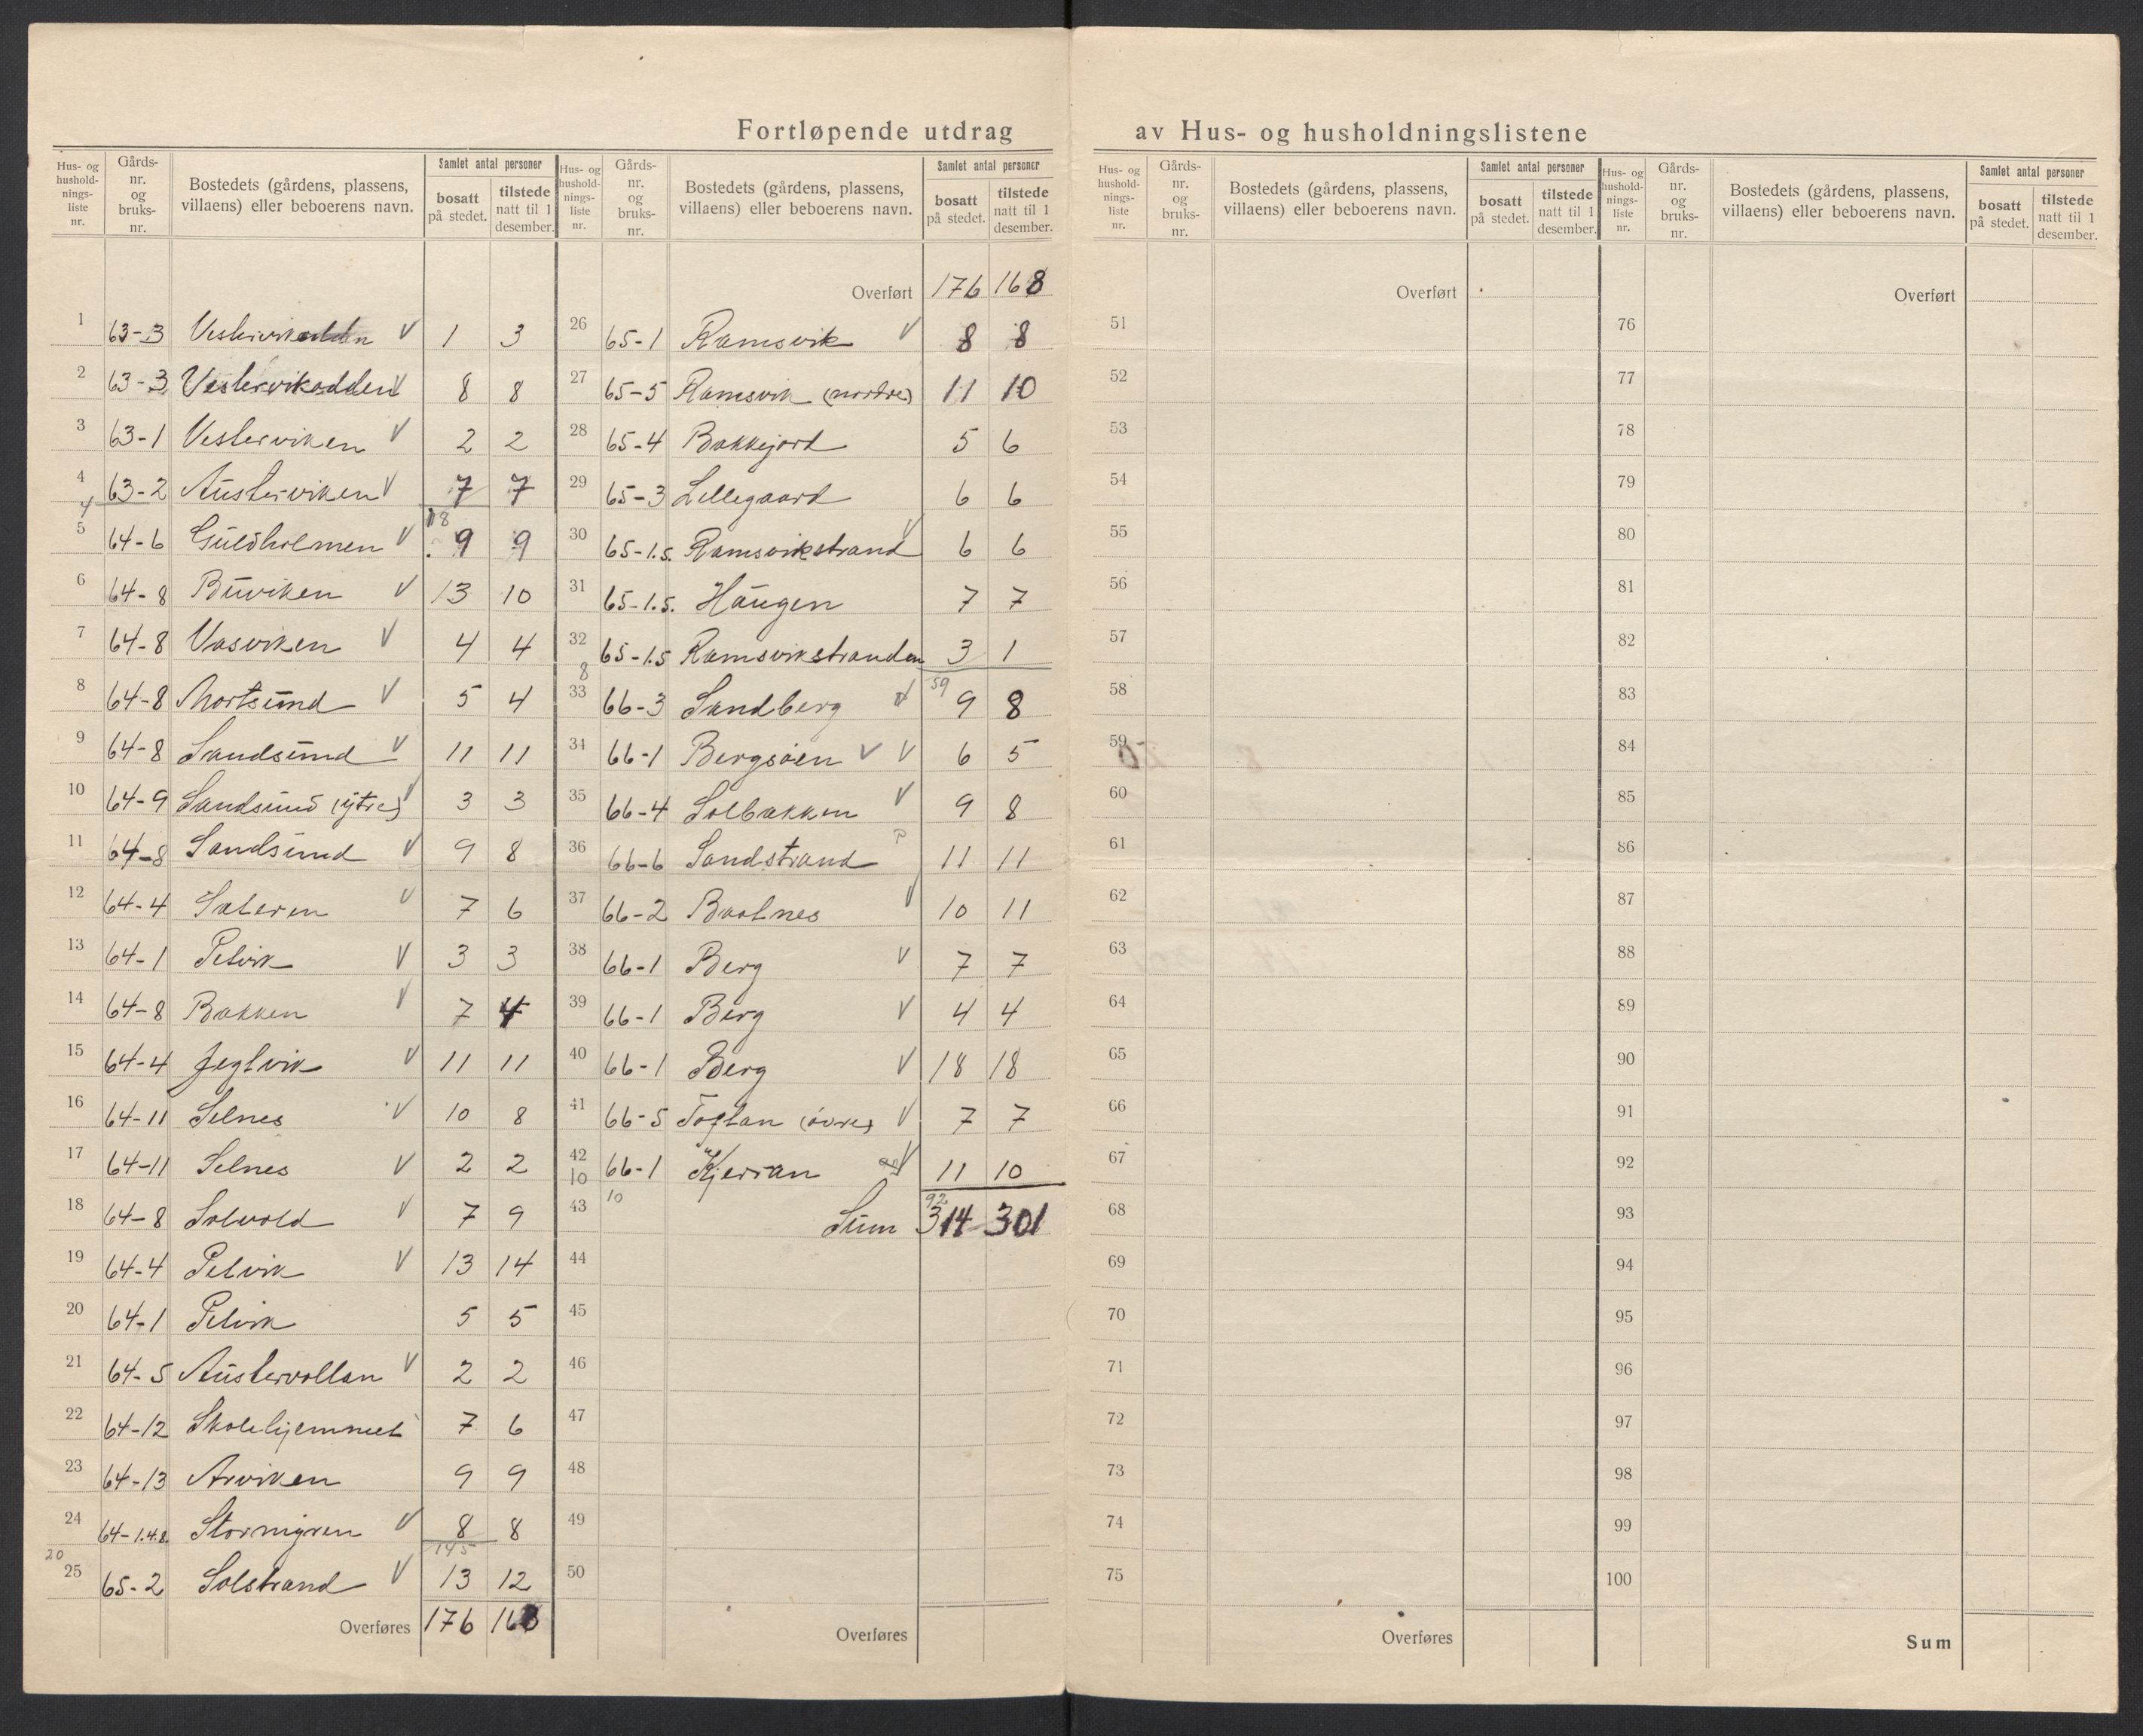 Fortløpende utdrag av Hus- og husholdningslistene
Hus- og hushold-nings-liste nr. Gårds-nr. og bruks-nr. Bostedets (gårdens, plassens, villaens) eller beboerens navn. Samlet antal personer bosatt på stedet. tilstede natt til 1 desember.
1 63-3 Vestervikodden V 1 3
2 63-3 Vestervikodden V 8 8
3 63-1 Vesterviken V 2 2
4 63-2 Austerviken V 7 7
4 18
5 64-6 Guldholmen V 9 9
6 64-8 Buviken V 13 10
7 64-8 Vasviken V 4 4
8 64-8 Mortsund V 5 4
9 64-8 Sandsund V 11 11
10 64-9 Sandsund (ytre) V 3 3
11 64-8 Sandsund V 9 8
12 64-4 Sæteren V 7 6
13 64-1 Pelvik V 3 3
14 64-8 Bakken V 7 4
15 64-4 Jegtvik V 11 11
16 64-11 Selnes V 10 8
17 64-11 Selnes V 2 2
18 64-8 Solvold V 7 9
19 64-4 Pelvik V 13 14
20 64-1 Pelvik 5 5
21 64-5 Austervollan V 2 2
22 64-12 Skolehjemmet 7 6
23 64-13 Arviken 9 9
24 64-1.4.8. Stormyren V 8 8
20 145
25 65-2 Solstrand V 13 12
Overføres 176 168
Hus- og hushold-nings-liste nr. Gårds-nr. og bruks-nr. Bostedets (gårdens, plassens, villaens) eller beboerens navn. Samlet antal personer bosatt på stedet. tilstede natt til 1 desember.
Overført 176 168
26 65-1 Ramsvik V 8 8
27 65-5 Ramsvik (nordre) 11 10
28 65-4 Bakkejord 5 6
29 65-3 Lillegaard 6 6
30 65-1.5. Ramsvikstrand V 6 6
31 65-1.5. Haugen 7 7
32 65-1.5 Ramsvikstranden 3 1
8 59
33 66-3 Sandberg V 9 8
34 66-1 Bergsøen V V 6 5
35 66-4 Solbakken V 9 8
36 66-6 Sandstrand 11 11
37 66-2 Baatnes V 10 11
38 66-1 Berg V 7 7
39 66-1 Berg V 4 4
40 66-1 Berg V 18 18
41 66-5 Toftan (øvre) V 7 7
42 66-1 Kjerran V 11 10
10 10 92
43 Sum 314 301
44
45
46
47
48
49
50
Overføres
Hus- og hushold-nings-liste nr. Gårds-nr. og bruks-nr. Bostedets (gårdens, plassens, villaens) eller beboerens navn. Samlet antal personer bosatt på stedet. tilstede natt til 1 desember.
Overført
51
52
53
54
55
56
57
58
59
60
61
62
63
64
65
66
67
68
69
70
71
72
73
74
75
Overføres
Hus- og hushold-nings-liste nr. Gårds-nr. og bruks-nr. Bostedets (gårdens, plassens, villaens) eller beboerens navn. Samlet antal personer bosatt på stedet. tilstede natt til 1 desember.
Overført
76
77
78
79
80
81
82
83
84
85
86
87
88
89
90
91
92
93
94
95
96
97
98
99
100
Sum